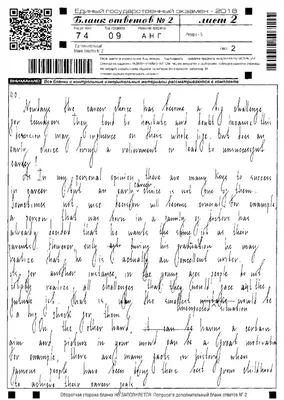 Единый государственный экзамен - 2018
Бланк ответов № 2
лист 2
74
09
АНГ
Резерв - 5
Лист 2
ВНИМАНИЕ!
Все бланки и контрольные измерительные материалы рассматриваются в комплекте
40.
Nowadays the career choice has become a big challenge
for teenagers they tend to hesitate and doubt because this
way influence on their whole life. but does an
early choice bring a or lead to unsuccessful
career?
As In my personal opinion, there are many keys to success
in career but an early career choice is not one by them.
Sometimes not wise decision will become crucial for example,
a person, that was born in a family of doctors has
already decided that he wants the same job as their
parents. However, only during his he may
realize that he is actually an excellent writer.
As for another instance, in the young age people do not
realize all challenges that they could face at the
future job. That is why the smallest unexpected situation would be
a big shock for them.
On the other hand, having a certain
aim and picture in your mind can be a great motivation
For example, there are many facts in history when
famous people have been using their best from childhood
to achieve their career goals
Оборотная сторона бланка НЕ ЗАПОЛНЯЕТСЯ. Попросите дополнительный бланк ответов № 2